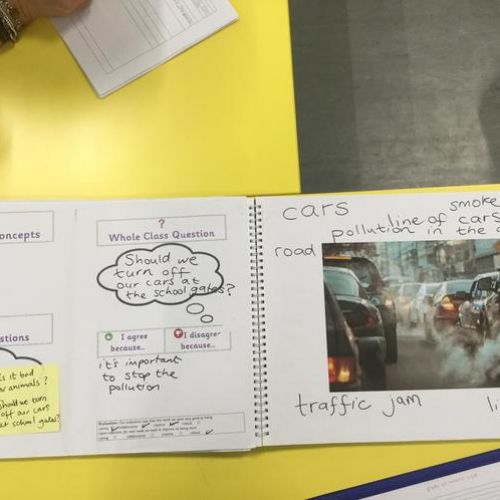 oncepts
?
Whole Class Question
Should we
turn off
our cars at
the school gates?
stions
I agree
because..
I disagree
because..
it's important
to stop the
pollution
is it bad
animals?
Should we turn
off our cars
at school gates?
cars
smoke
line of cars
pollution in the a
road
traffic jam
li